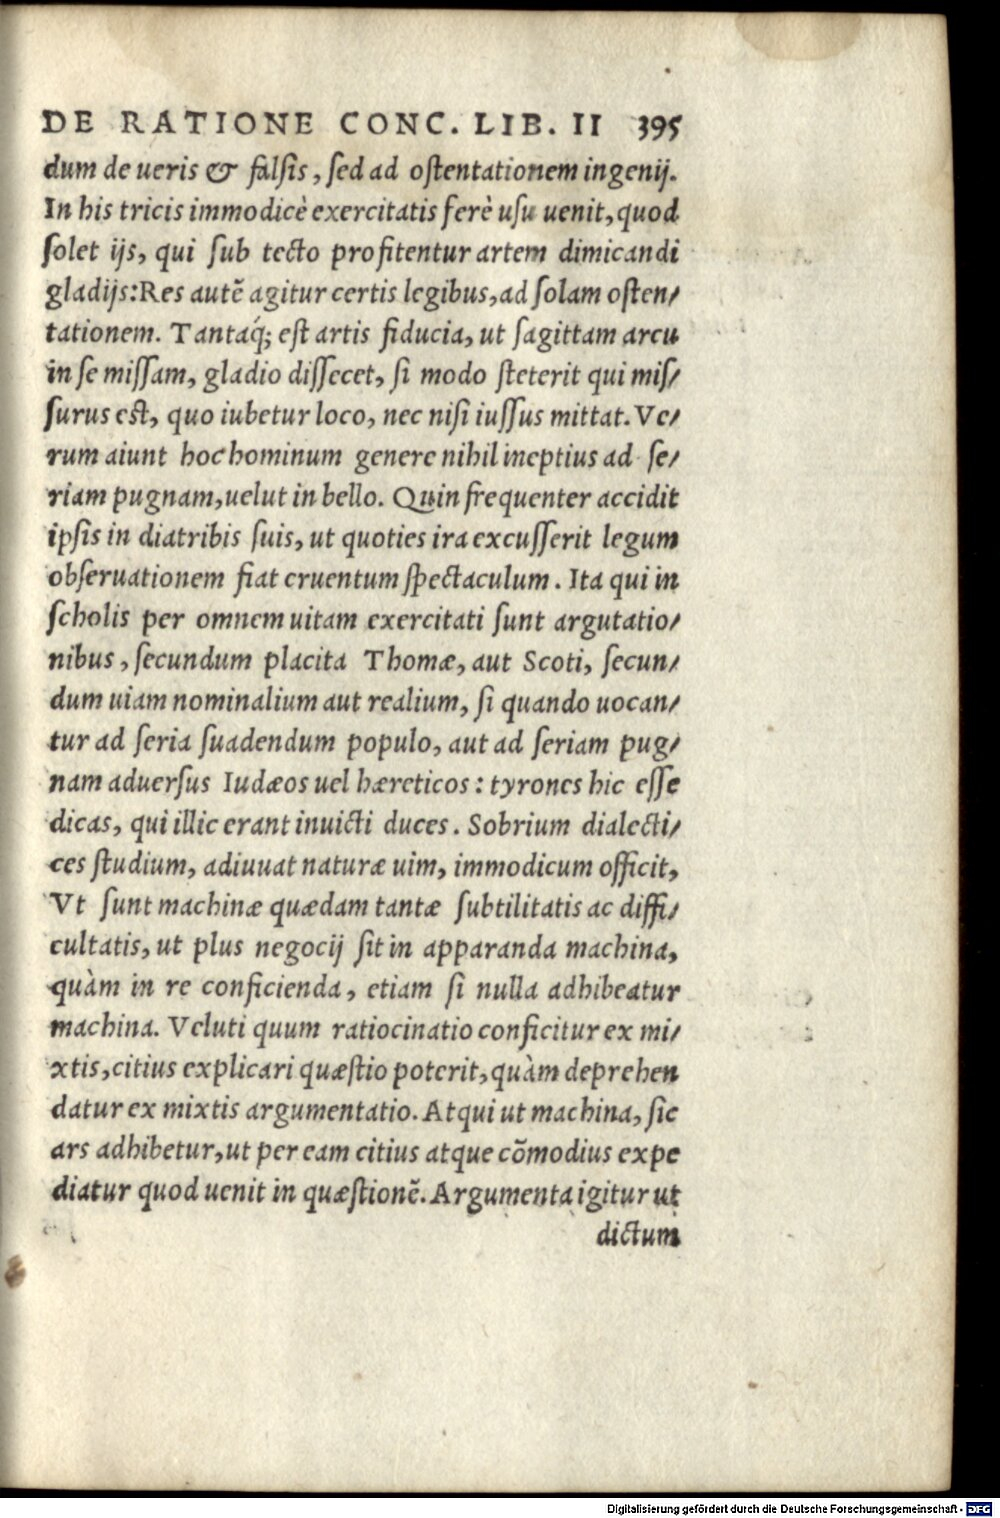 DE RATIONE CONC. LIB. II 395
dum de ueris & falsis, sed ad ostentationem ingenij.
In his tricis immodicè exercitatis ferè usu uenit, quod
solet ijs, qui sub tecto profitentur artem dimicandi
gladijs: Res autē agitur certis legibus, ad solam osten/
tationem. Tantaq́; est artis fiducia, ut sagittam arcu
in se missam, gladio dissecet, si modo steterit qui mis/
surus est, quo iubetur loco, nec nisi iussus mittat. Ve/
rum aiunt hoc hominum genere nihil ineptius ad se/
riam pugnam, uelut in bello. Quin frequenter accidit
ipsis in diatribis suis, ut quoties ira excusserit legum
obseruationem fiat cruentum spectaculum. Ita qui in
scholis per omnem uitam exercitati sunt argutatio/
nibus, secundum placita Thomæ, aut Scoti, secun/
dum uiam nominalium aut realium, si quando uocan/
tur ad seria suadendum populo, aut ad seriam pug/
nam aduersus Iudæos uel hæreticos: tyrones hic esse
dicas, qui illic erant inuicti duces. Sobrium dialecti/
ces studium, adiuuat naturæ uim, immodicum officit,
Vt sunt machinæ quædam tantæ subtilitatis ac diffi/
cultatis, ut plus negocij sit in apparanda machina,
quàm in re conficienda, etiam si nulla adhibeatur
machina. Veluti quum ratiocinatio conficitur ex mi/
xtis, citius explicari quæstio poterit, quàm deprehen
datur ex mixtis argumentatio. Atqui ut machina, sic
ars adhibetur, ut per eam citius atque cōmodius expe
diatur quod uenit in quæstionē. Argumenta igitur ut
dictum
Digitalisierung gefördert durch die Deutsche Forschungsgemeinschaft - DFG